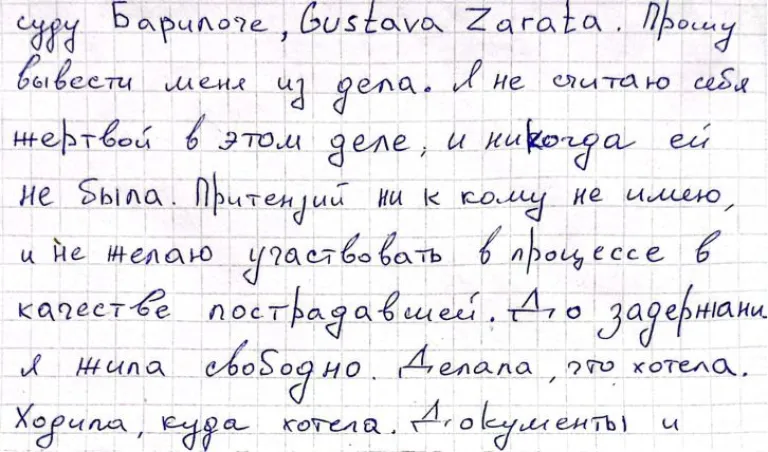 суду Барилоче, Gustava Zarata. Прошу
вывести меня из дела. Я не считаю себя
жертвой в этом деле, и никогда ей
не была. Притензий ни к кому не имею,
и не желаю участвовать в процессе в
качестве пострадавшей. До задержани
я жила свободно. Делала, что хотела.
Ходила, куда хотела. Документы и